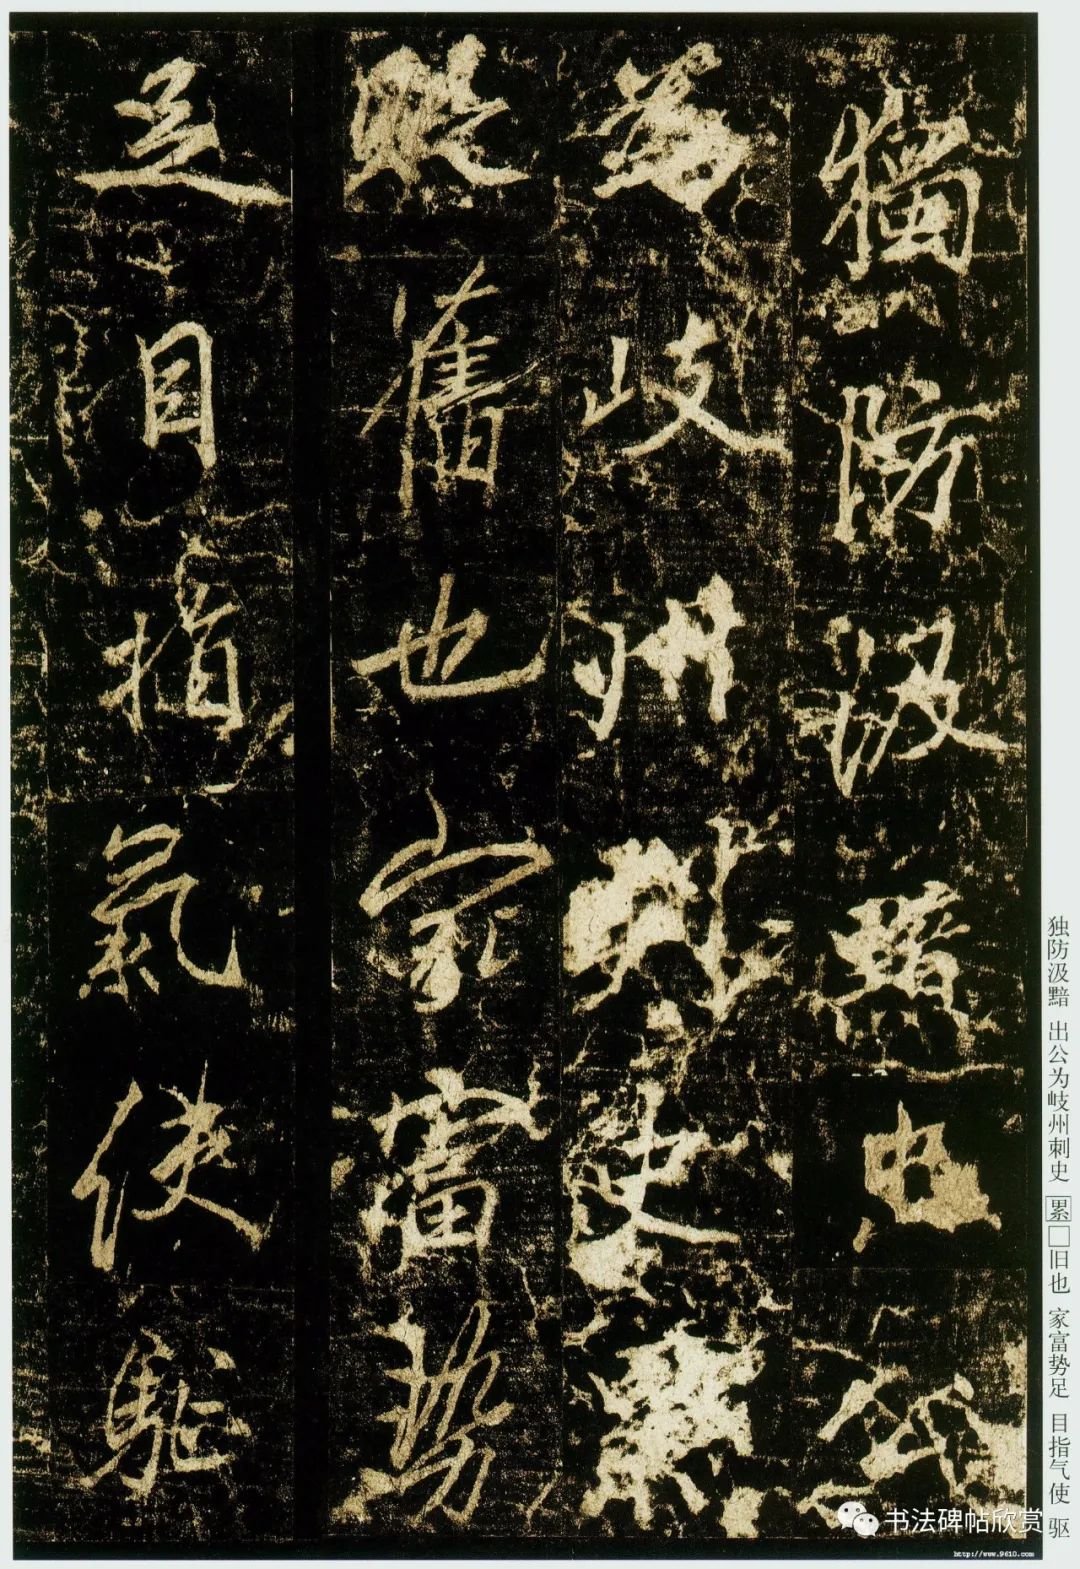 獨防汲黯出公
為岐州刺史累
舊也家富勢
足目指氣使駈
独防汲黯 出公为岐州刺史 累□旧也 家富势足 目指气使 驱
书法碑帖欣赏
http://www.9610.com